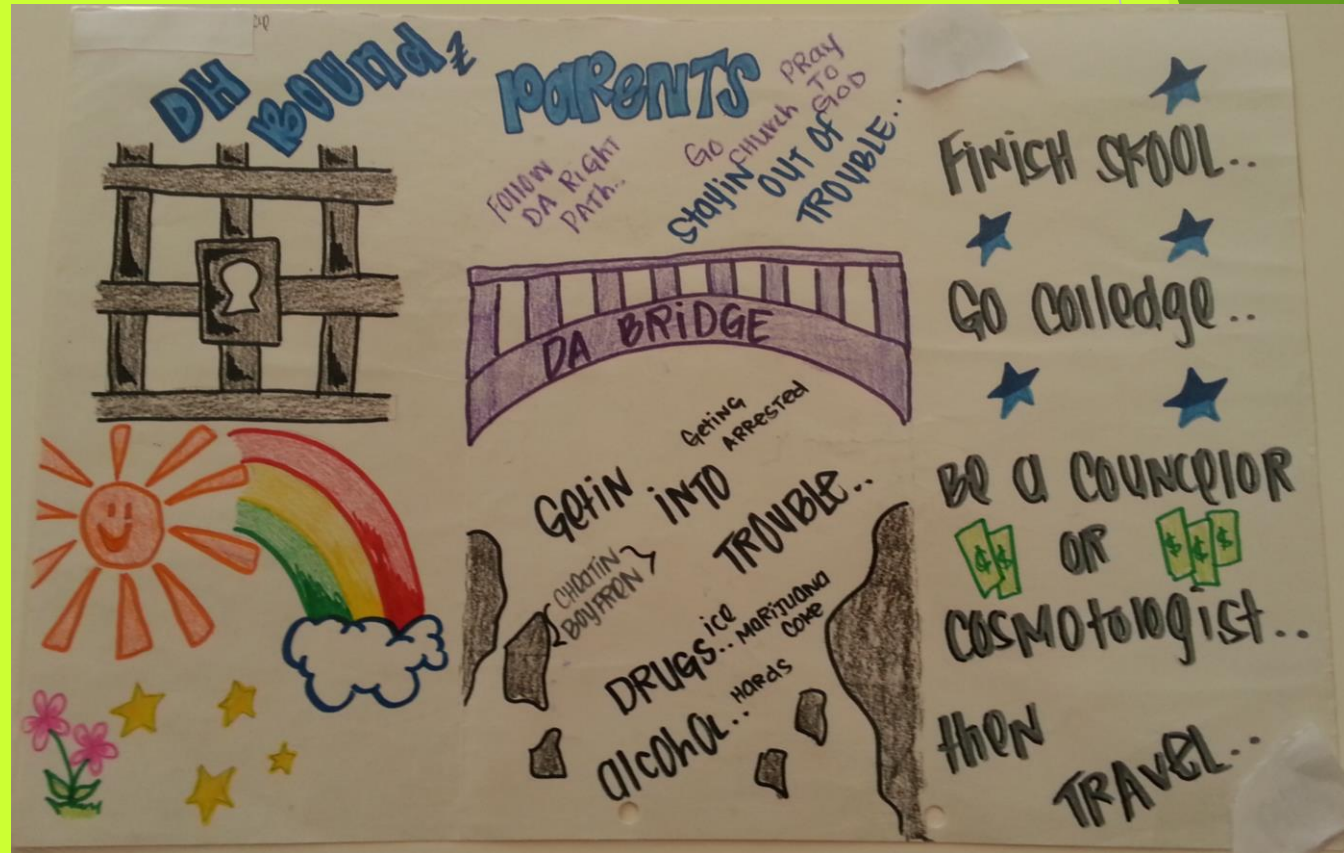 DH
BOUNDz
PARENTS
FOLLOW
DA RIGHT
PATH..
GO
CHURCH
PRAY
TO
GOD
STAYIN
OUT OF
TROUBLE..
DA BRIDGE
GETING
ARRESTED
GETIN
INTO
TROUBLE..
CHEATIN
BOYFREN
DRUGS..
ICE
MARIJUANA
COKE
ALCOHOL..
HARDS
FINICH SKOOL..
GO COLLEDGE..
BE A COUNCELOR
$ $ OR $ $ $
COSMOTOLOGIST..
THEN
TRAVEL..